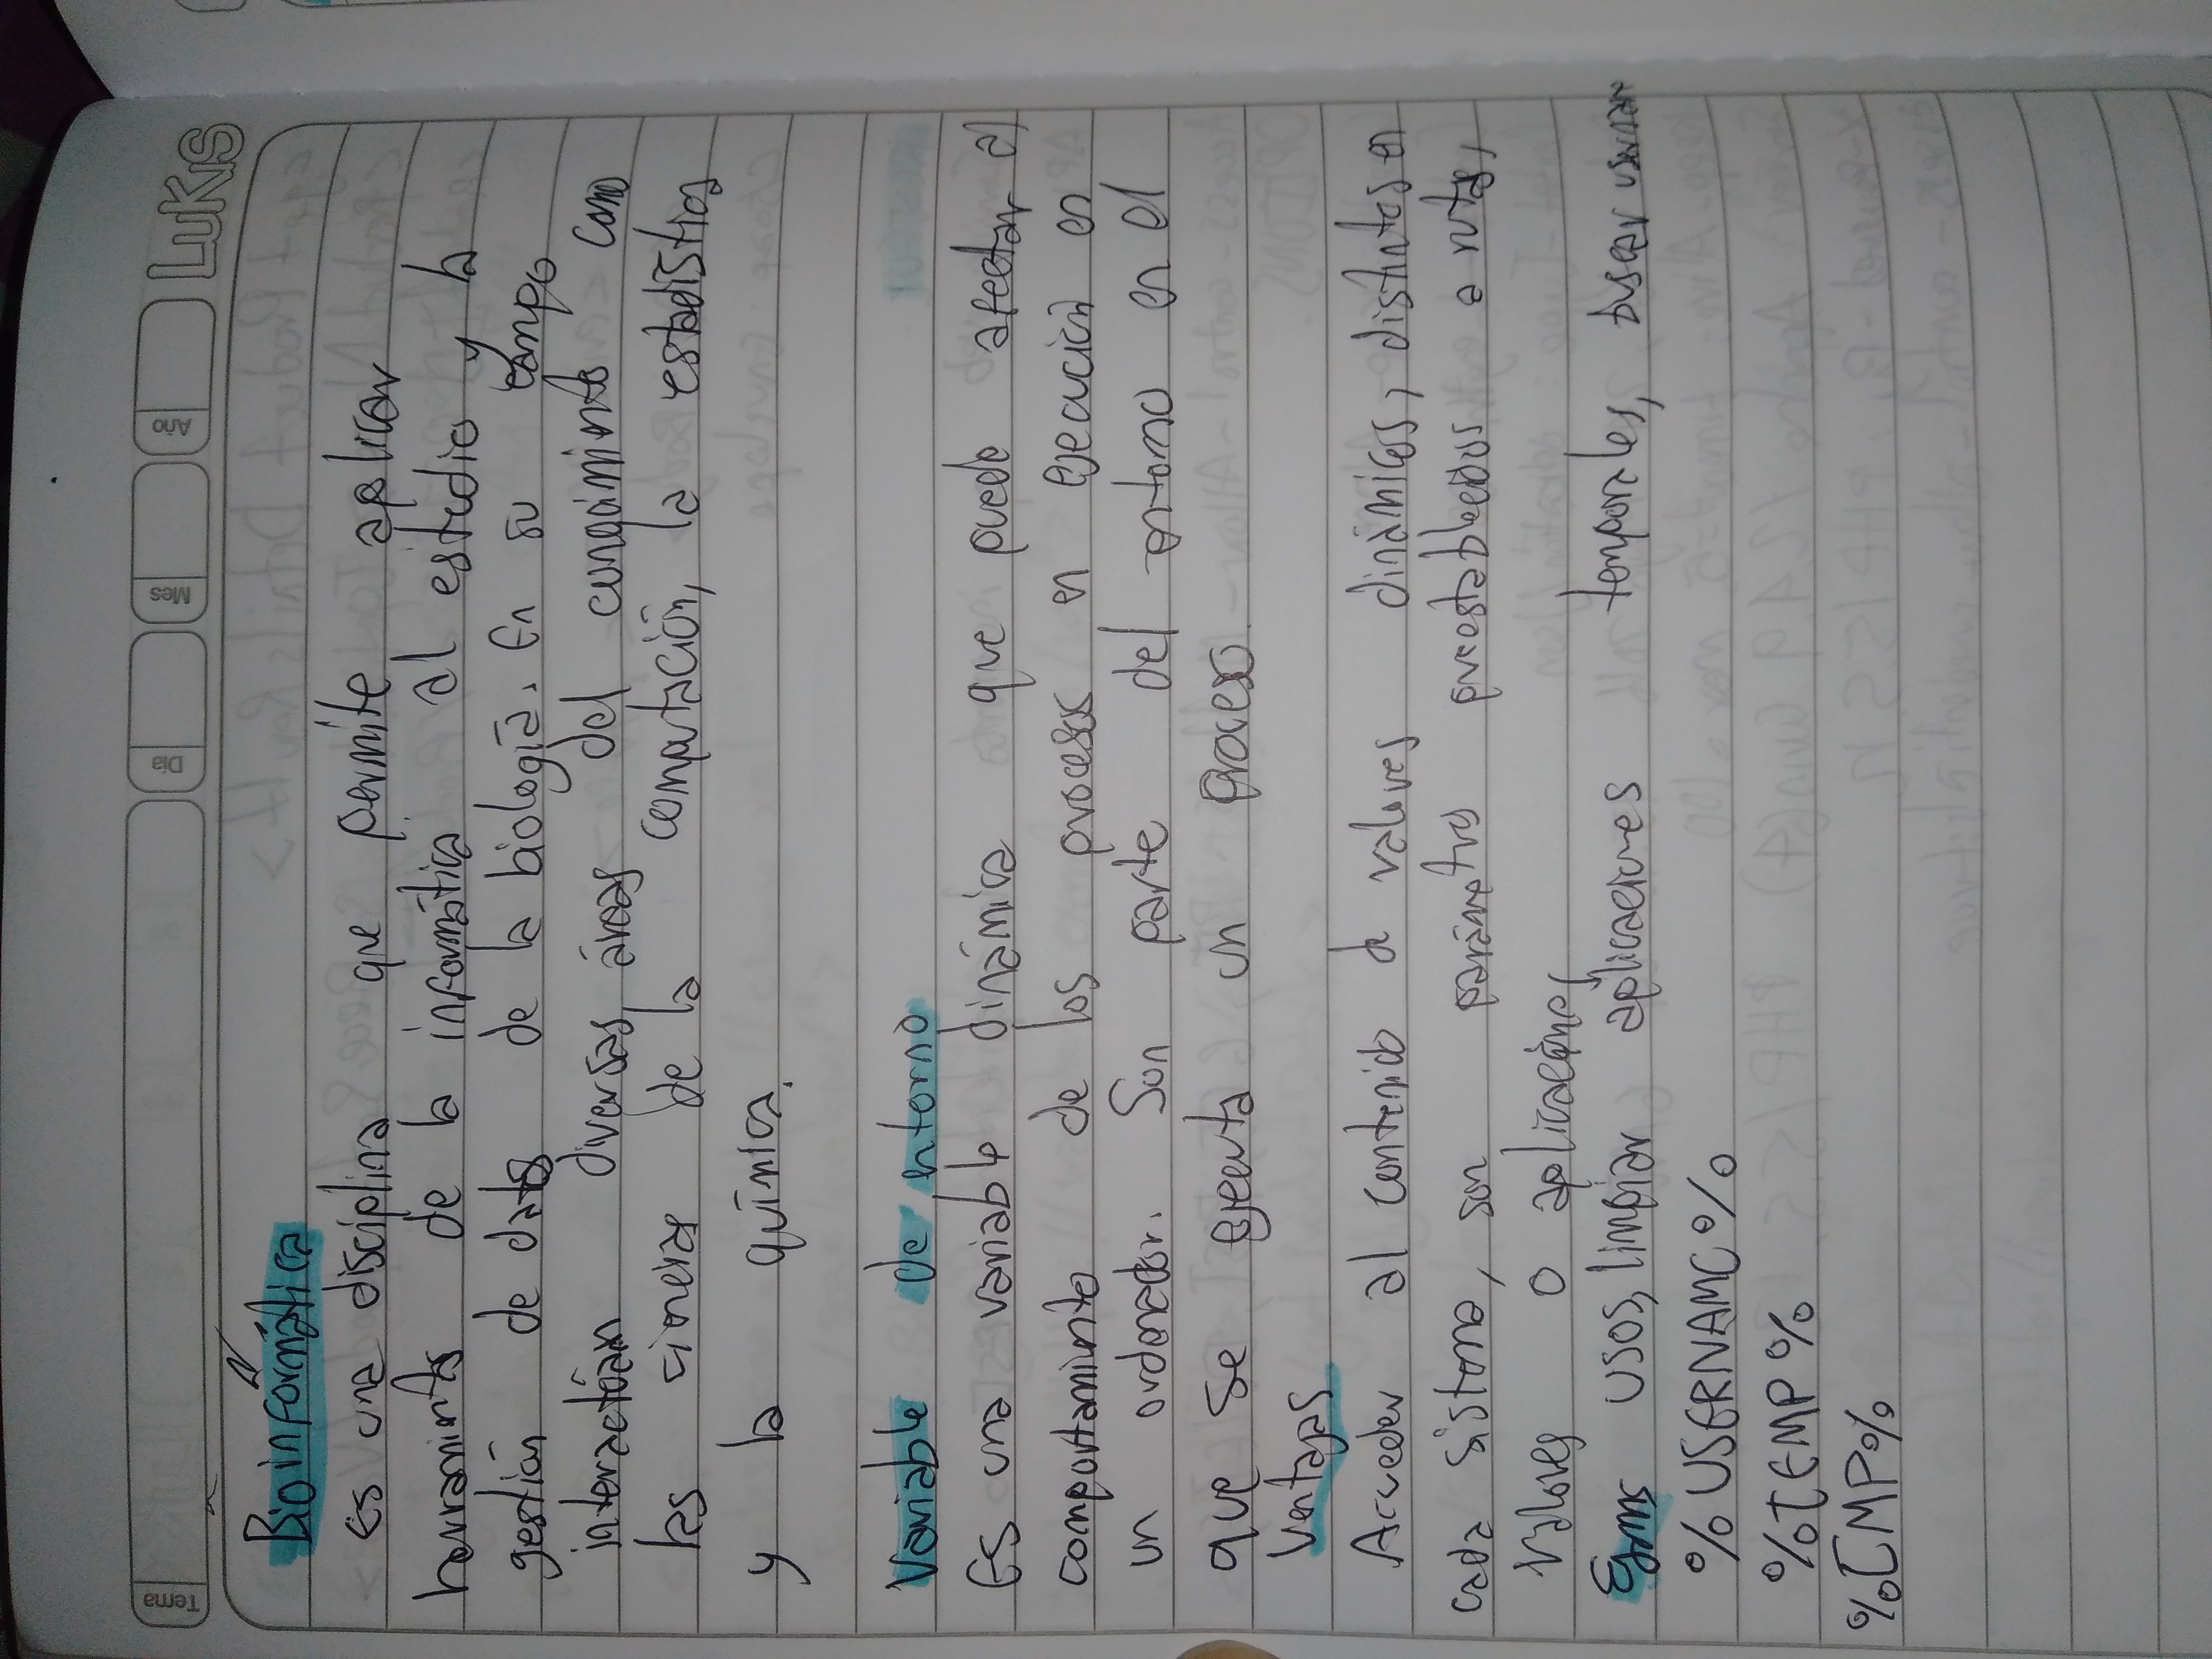 Tema Día Mes Año LUKIS
Bioinformática
Es una disciplina que permite aplicar
herramientas de la informática al estudio y la
gestión de datos de la biología. En su campo
interactúan diversas áreas del conocimiento como
las ciencias de la computación, la estadística
y la química.
Variable de entorno
Es una variable dinámica que puede afectar al
comportamiento de los procesos en ejecución en
un ordenador. Son parte del entorno en el
que se ejecuta un proceso.
Ventajas
Acceder al contenido de valores dinámicos, distintos en
cada sistema, son parámetros preestablecidos a rutas,
valores o aplicaciones
usos, limpiar aplicaciones temporales, buscar username
%USERNAME%
%TEMP%
%TMP%